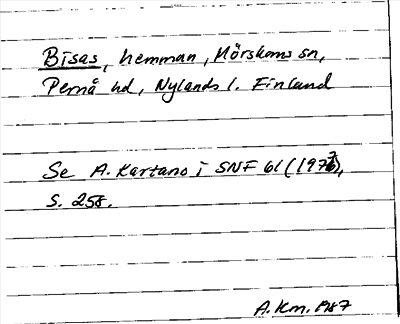 Bisas, hemman, Mörskoms sn,
Pernå hd, Nylands l. Finland
Se A. Kartano i SNF 61 (1973),
s. 258.
A.Km. 1987